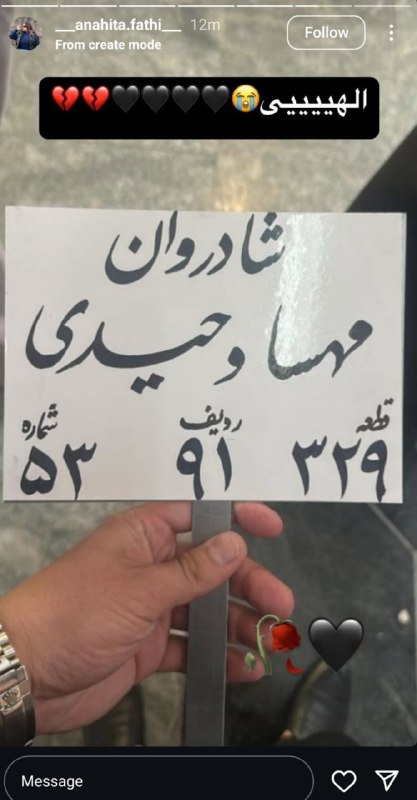 __anahita.fathi__ 12m
From create mode
Follow
الهیییییی😭🖤🖤🖤🖤💔💔
شادروان
مهسا وحیدی
قطعه ردیف شماره
۳۲۹ ۹۱ ۵۳
Message